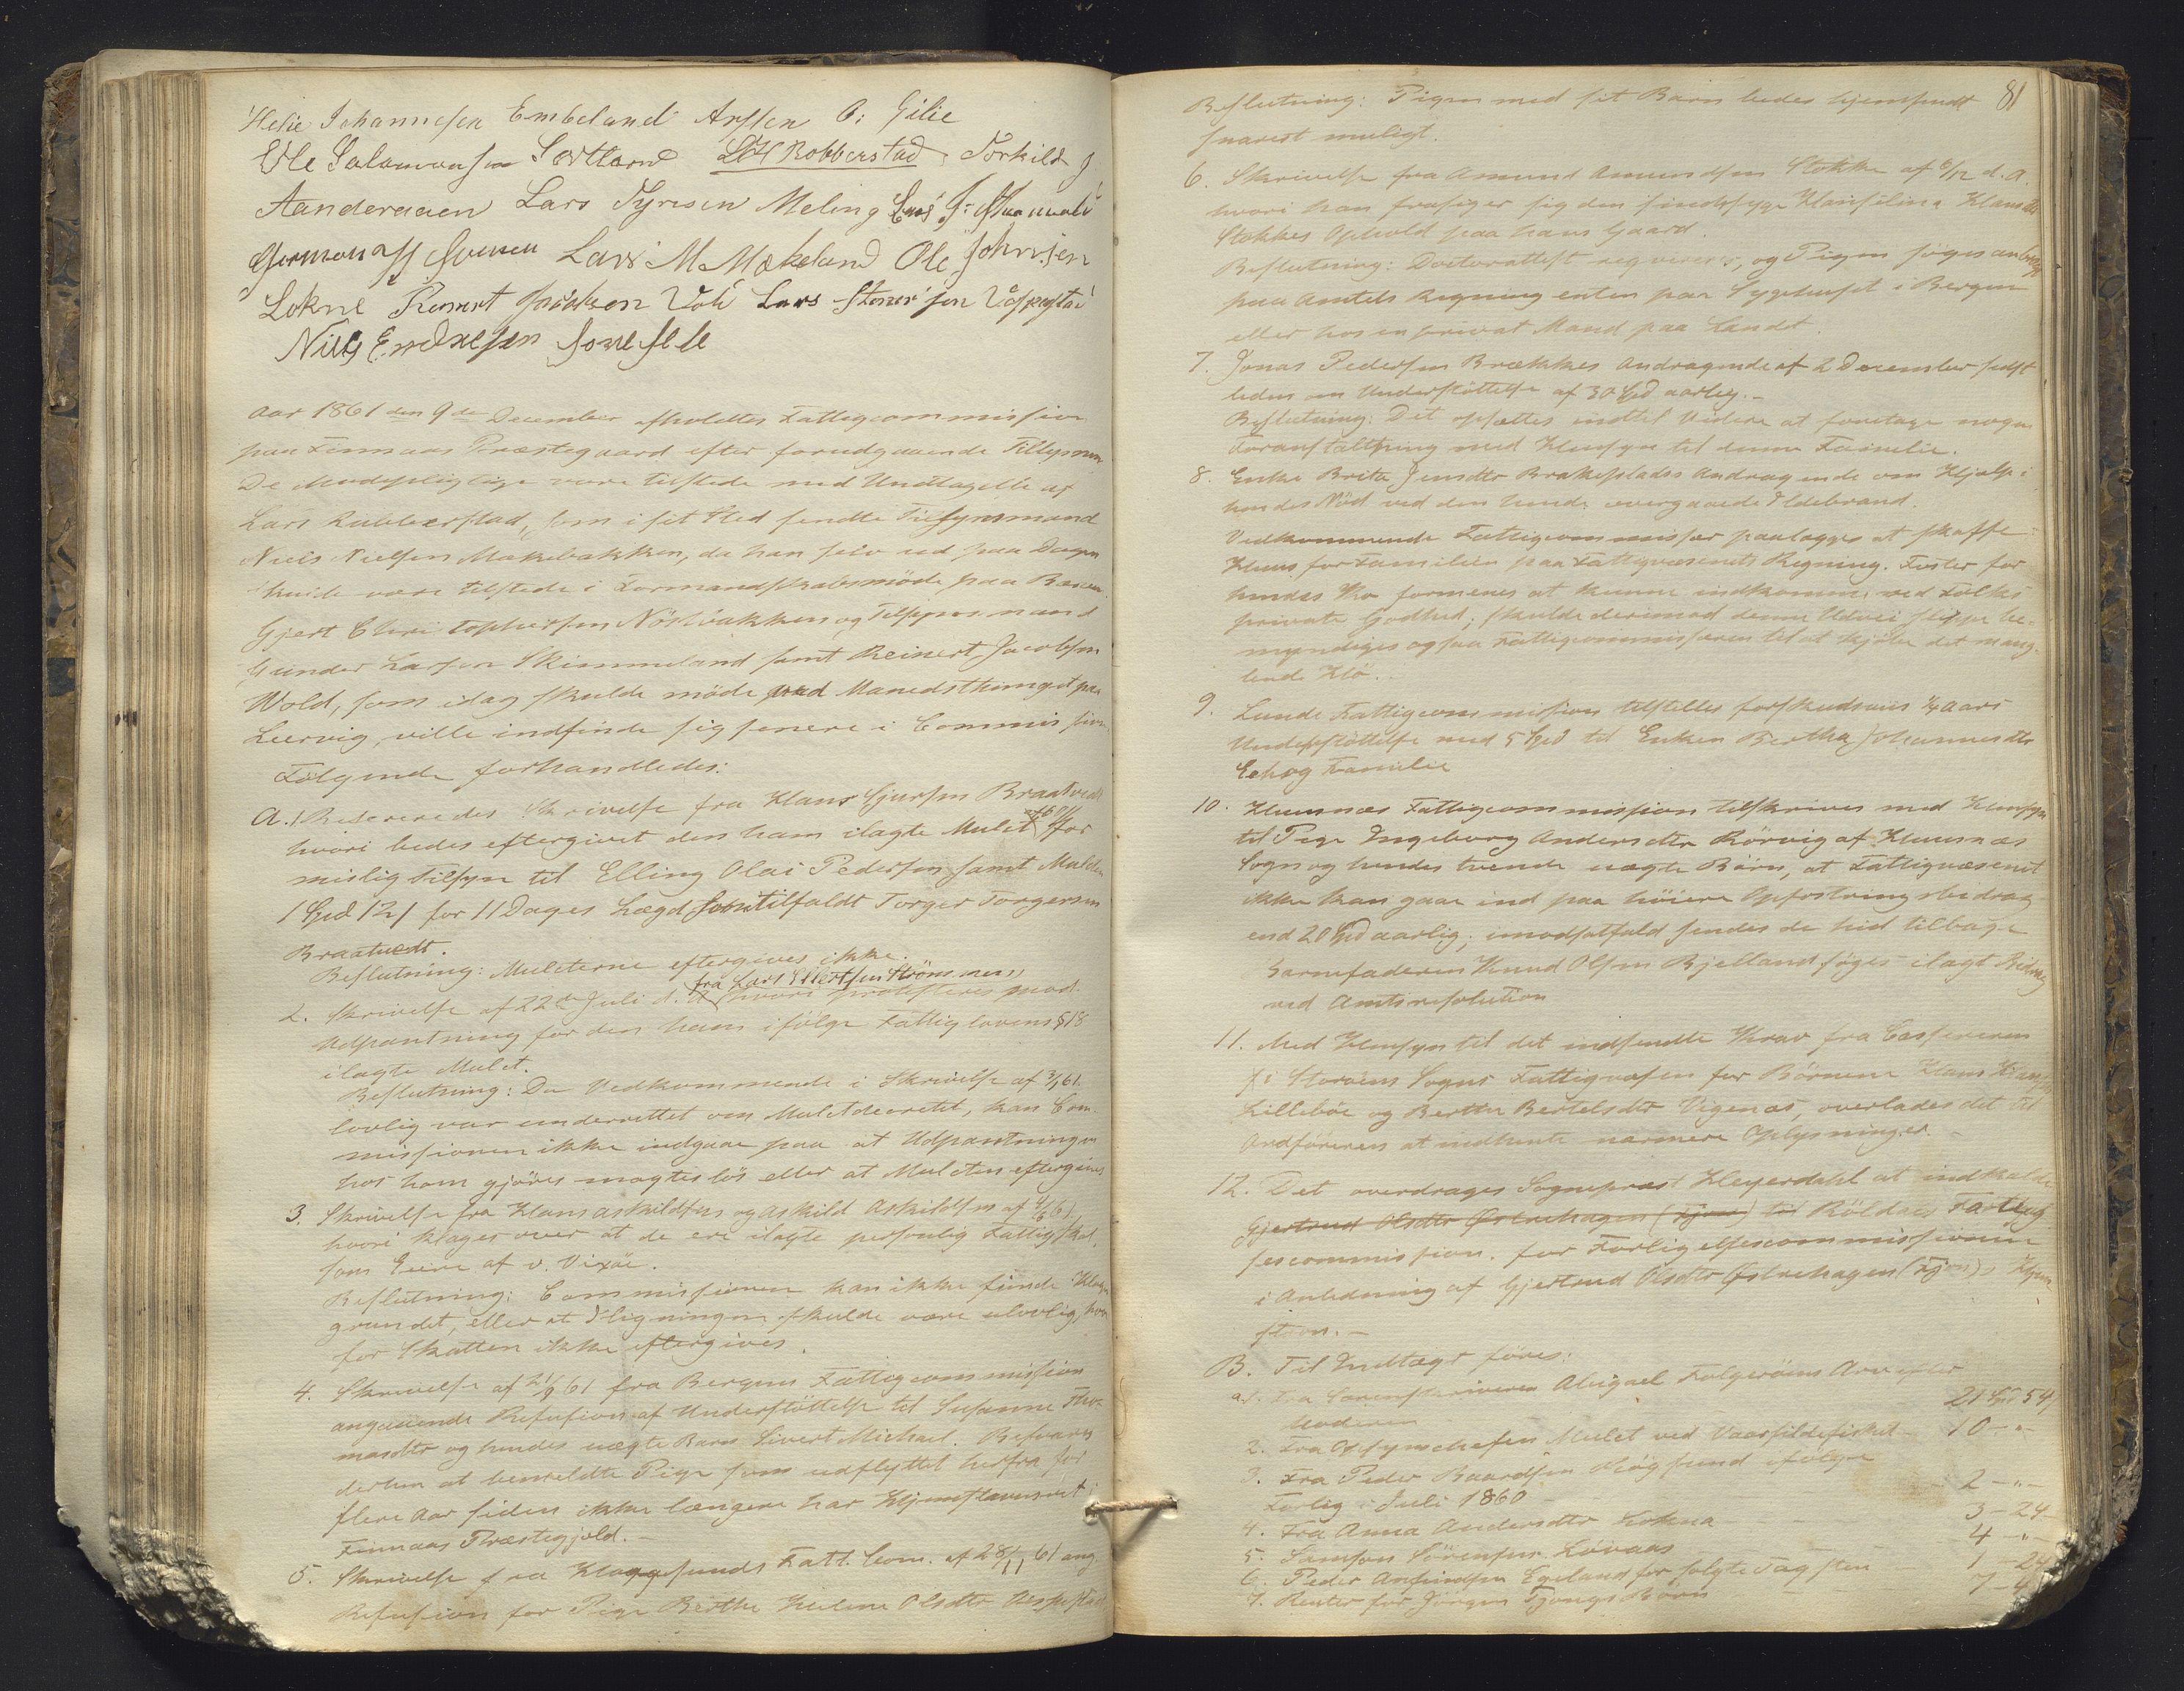 Helie Johannesen Embeland Arssen O: Gilie
Ole Salamonsen Sortland LH Robberstad Torkild J
Aanderaaen Lars Tyresen Meling
Lars M Mækeland Ole Johnsen
Lokne Reinert Vold Lars
Niels Endresen
Aar 1861 den 9de December afholdtes Fattigcommission
paa Finnaas Præstegaard efter forudgaaende Tillysning
De Mødepligtige vare tilstede med Undtagelse af
Lars Rubberstad, som i sit Sted sendte Tilsynsmand
Niels Nielsen Mækebakken, da han selv ud paa Dagen
skulde være tilstede i Formandskabsmöde paa
Gjert Christophersen Nösbakken og Tilsynsmand
Gunder Larsen Skimmeland samt Reinert Jacobsen
Wold, som idag skulde möde ved Manedsthinget paa
Leervig, ville indfinde sig senere i Commissionen
Følgende forhandledes:
A.1 Refereredes Skrivelse fra Hans Gjersen Braatvedt
hvori bedes eftergivet den ham ilagte Mulct for
mislig Tilsyn til Elling Olai Pedersen samt Mulcten
1 Spd 12 s for 11 Dages Lægd som tilfaldt Torger Torgersen
Braatvedt.
Beslutning: Mulcterne eftergives ikke.
fra Lars Ellertsen Strömmen,
2. Skrivelse af 22de Juli d. A hvori protesteres mod
Udpantning for den ham ifölge Fattiglovens § 18
ilagte Mulct.
Beslutning: Da Vedkommende i Skrivelse af 3/1 61.
lovlig var underrettet om Mulctdecretet, kan Com-
missionen ikke indgaae paa at Udpantningen
hos ham gjöres magteslös eller at Mulcten eftergives
3. Skrivelse fra Hans Askildsen og Askild Askildsen af
hvori klages over at de ere ilagte personlig Fattigskat,
som Eiere af v. Vixöe.
Beslutning: Commissionen kan ikke finde Klagen
grundet, eller at Ligningen skulde være ulovlig, hvor-
for Skatten ikke eftergives.
4. Skrivelse af 21/9 61 fra Bergens Fattigcommission
angaaende Refusion af Understöttelse til Susanne Tho-
masdtr og hendes uægte Barn Sivert Michael. Besvares
derhen at bemeldte Pige som udflyttet herfra for
flere Aar siden ikke længere har Hjemstavnsret i
Finnaas Præstegjeld. -
5. Skrivelse fra Haugesunds Fatt. Com. af 28/11 61 ang.
Refusion for Pige Berthe Helene Olsdtr
81
Beslutning: Pigen med sit Barn bedes hjemsendt
snarest muligt.
6. Skrivelse fra Amund Amundsen Stokke af 6/12 d. A.
hvori han frasiger sig den sindssyge Hansilina Hansdtr
Stokkes Ophold paa hans Gaard.
Beslutning: Doctorattest reqvireres, og Pigen söges anbragt
paa Amtets Regning enten paa Sygehuset i Bergen
eller hos en privat Mand paa Landet.
7. Jonas Pedersen Brækkes Andragende af 2 December sidst-
leden om Understöttelse af 30 Spd aarlig. -
Beslutning: Det opsættes indtil Videre at foretage nogen
Foranstaltning med Hensyn til denne Familie.
8. Enke Brita Jensdtr Brakepladss Andragende om Hjelp i
hendes Nöd ved den hende overgaaede Ildebrand.
Vedkommende Fattigcommissær paalægges at skaffe
Huus for Familien paa Fattigvæsenets Regning. Foster for
hendes Ko formenes at kunne indkomme ved Folks
private Godhed; skulde derimod denne Udvei slippe be-
myndiges ogsaa Fattigcommissæren til at kjöbe det mang-
lende Hö.
9. Lunde Fattigcommission tilstilles forskudsviis 1/4 Aars
Understöttelse med 5 Spd til Enken Bertha Johannesdtr
og Familie
10. Huusnæs Fattigcommission tilskrives med Hensyn
til Pige Ingeborg Andersdtr Rörvig af Huusnæs
Sogn og hendes tvende uægte Börn, at Fattigvæsenet
ikke kan gaae ind paa höiere Opfostringsbidrag
end 20 Spd aarlig; imodsatfald sendes de hid tilbage
Barnefaderen Knud Olsen Bjelland söges ilagt Bidrag
ved Amtsresolution
11. Med Hensyn til det indsendte Krav fra Cassereren
i Storöens Sogns Fattigvæsen for Börnene Hans
Lilleböe og Berthe Bertelsdtr Vigenæs, overlades det til
Ordföreren at indhente nærmere Oplysninger. -
12. Det overdrages Sognepræst Heyerdahl at indkalde
Gjertrud Olsdtr Östrehagen (Fjon) til Röldens Forlig-
sescommission. for Forligelsescommissionen
i Anledning af Gjertrud Olsdtr Östrehagen (Fjon)s Hjem-
stavn. -
B. Til Indtægt föres:
a1. Fra Sorenskriveren Abigael Folgeröens Arv efter
Moderen 21 Spd 54 s
2. Fra Opsynschefen Mulct ved Vaarsildefisket 10 - " -
3. Fra Peder Baardsen Kögsund ifölge
Forlig i Juli 1860 2 - " -
4. Fra Anna Andersdtr Lokna 3 - 24
5. Samson Sörensen Lövaas 4 - " -
6. Peder Anfindsen Egeland for solgte Tagsten 1 - 24
7. Renter for Jörgen Tjongs Börn 7 - 4